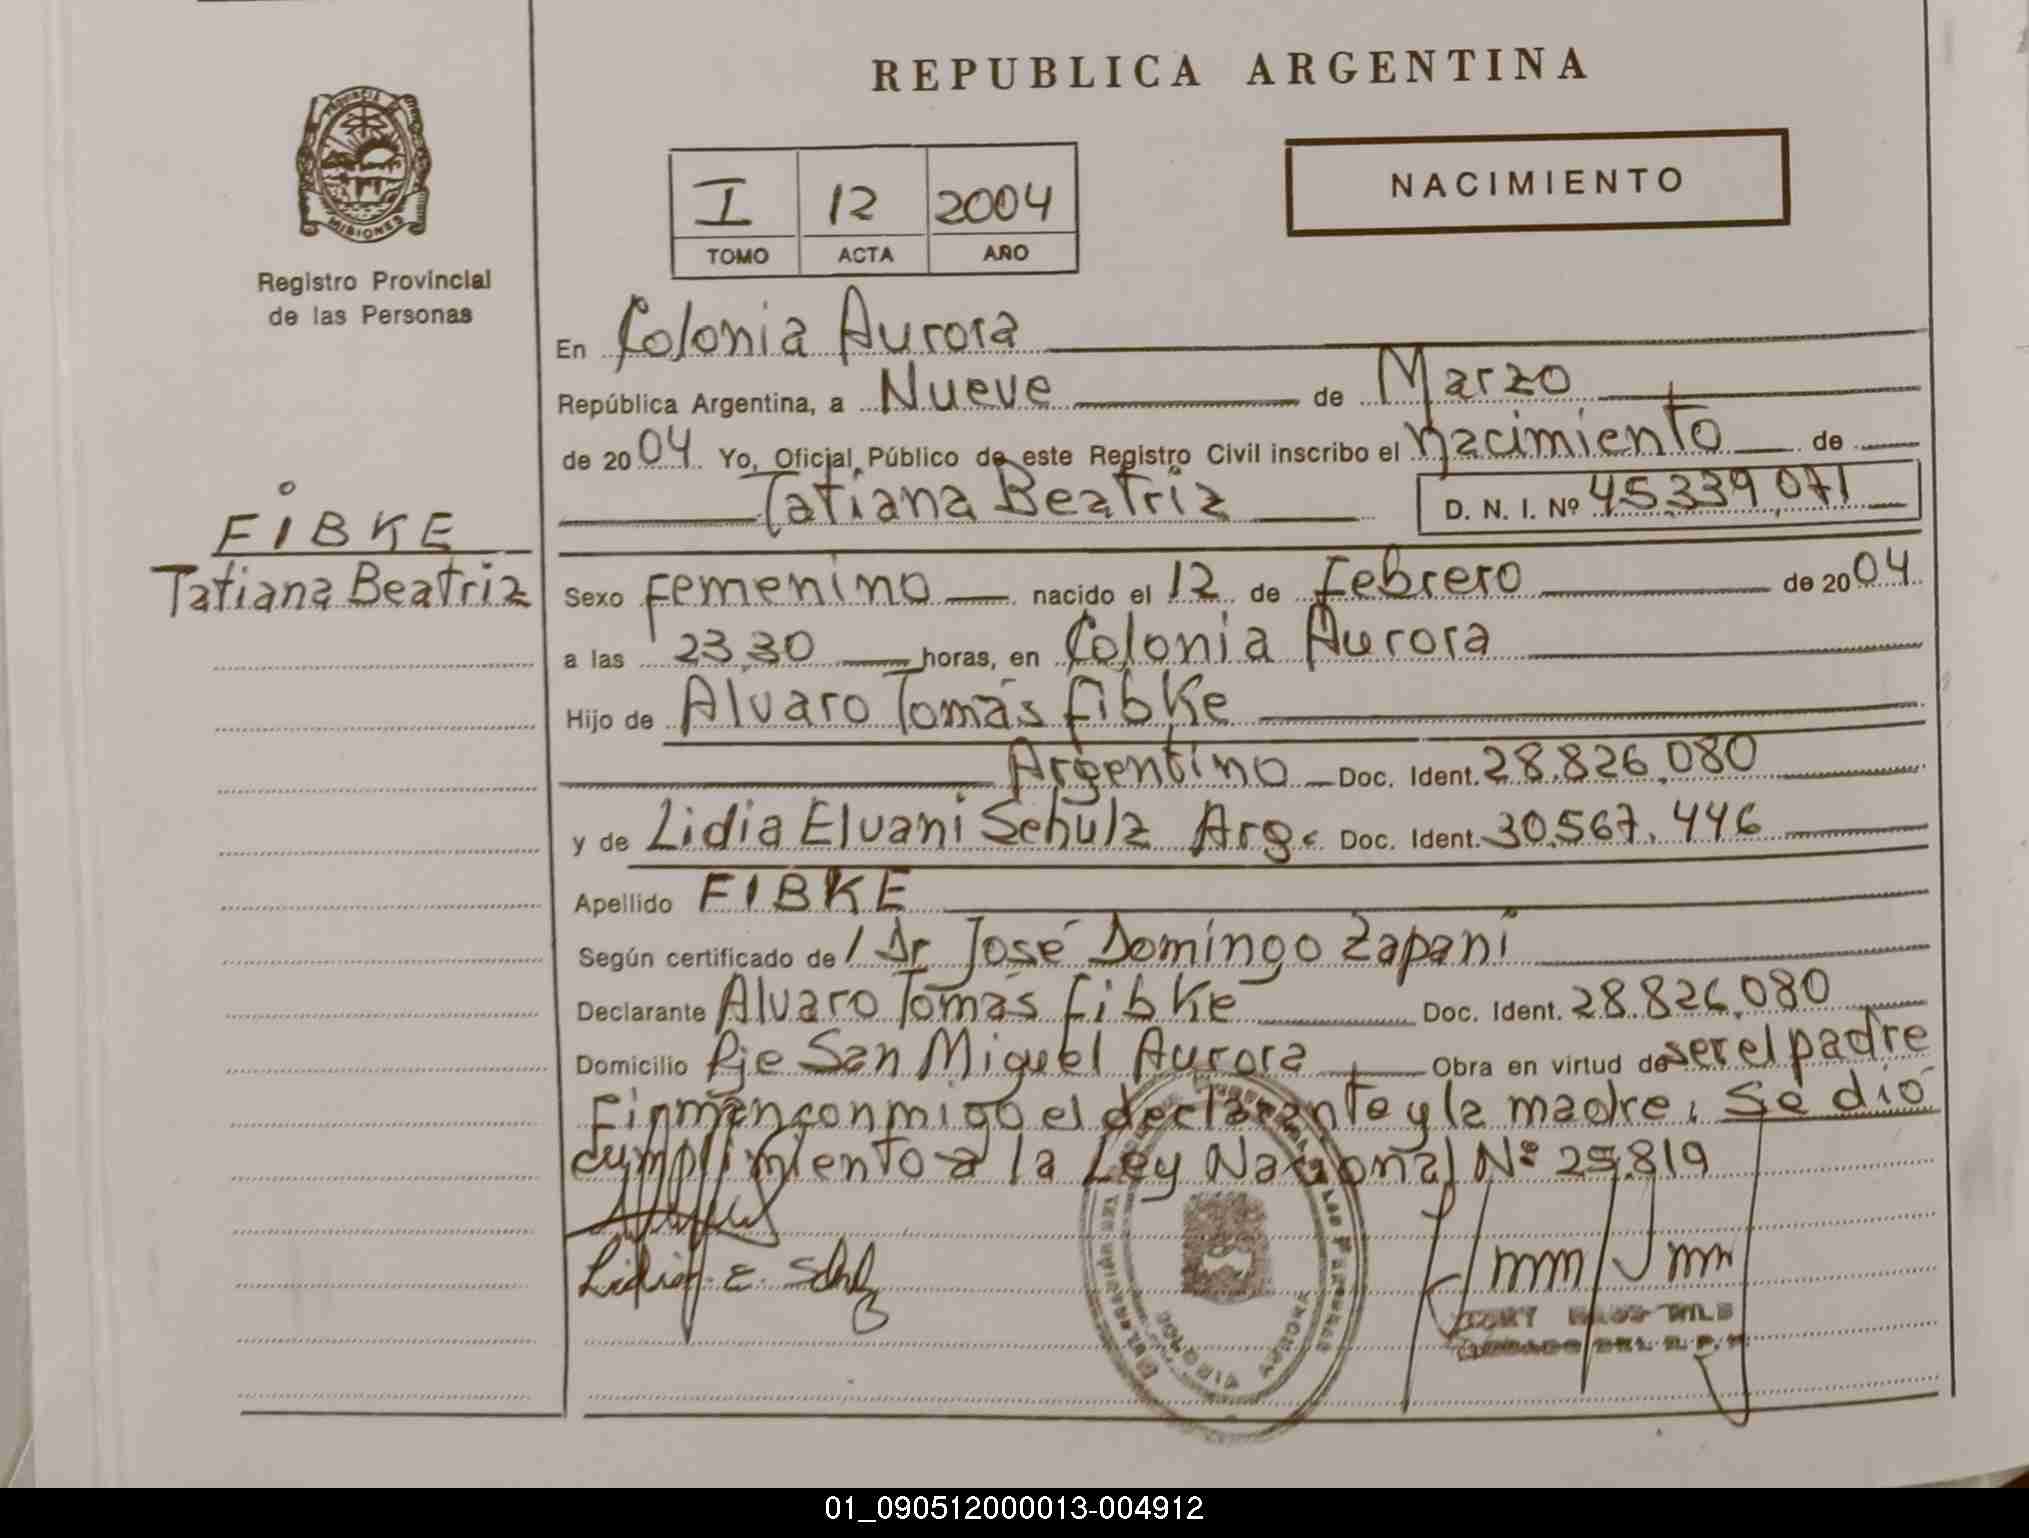 REPUBLICA ARGENTINA
PROVINCIA DE
MISIONES
Registro Provincial
de las Personas
NACIMIENTO
I 12 2004
TOMO ACTA AÑO
En Colonia Aurora
República Argentina, a Nueve de Marzo
de 2004 Yo, Oficial Público de este Registro Civil inscribo el nacimiento de
Tatiana Beatriz D. N. I. Nº 45.339.071
FIBKE
Tatiana Beatriz
Sexo Femenino nacido el 12 de Febrero de 2004
a las 23,30 horas, en Colonia Aurora
Hijo de Alvaro Tomás Fibke
Argentino Doc. Ident. 28.826.080
y de Lidia Elvani Schulz Arg. Doc. Ident. 30.567.446
Apellido FIBKE
Según certificado de / Dr José Domingo Zapani
Declarante Alvaro Tomás Fibke Doc. Ident. 28.826.080
Domicilio Pje San Miguel Aurora Obra en virtud de ser el padre
Firman conmigo el declarante y la madre. Se dió
cumplimiento a la Ley Nacional Nº 25.819
Lidia E. Schulz
COLONIA AURORA
01_090512000013-004912